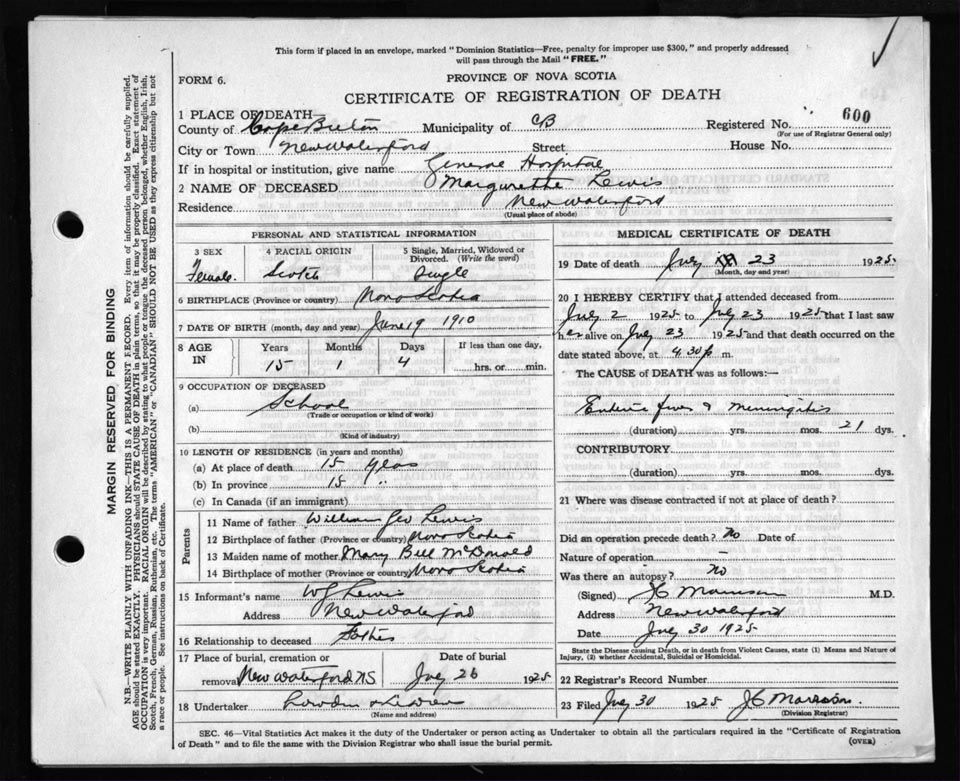 This form if placed in an envelope, marked "Dominion Statistics—Free, penalty for improper use $300," and properly addressed
will pass through the Mail "FREE."
FORM 6.
PROVINCE OF NOVA SCOTIA
CERTIFICATE OF REGISTRATION OF DEATH
1 PLACE OF DEATH
County of Cape Breton Municipality of CB Registered No. 600
(For use of Registrar General only)
City or Town New Waterford Street House No.
If in hospital or institution, give name General Hospital
2 NAME OF DECEASED Margurette Lewis
Residence New Waterford
(Usual place of abode)
PERSONAL AND STATISTICAL INFORMATION
3 SEX 4 RACIAL ORIGIN 5 Single, Married, Widowed or
Divorced. (Write the word)
Female. Scotch Single
6 BIRTHPLACE (Province or country) Nova Scotia
7 DATE OF BIRTH (month, day and year) June 19 1910
8 AGE IN Years Months Days If less than one day,
15 1 4 hrs. or min.
9 OCCUPATION OF DECEASED
(a) School
(Trade or occupation or kind of work)
(b)
(Kind of industry)
10 LENGTH OF RESIDENCE (in years and months)
(a) At place of death 15 years
(b) In province 15 "
(c) In Canada (if an immigrant)
Parents
11 Name of father William Geo Lewis
12 Birthplace of father (Province or country) Nova Scotia
13 Maiden name of mother Mary Bell McDonald
14 Birthplace of mother (Province or country) Nova Scotia
15 Informant's name WG Lewis
Address New Waterford
16 Relationship to deceased Father
17 Place of burial, cremation or Date of burial
removal New Waterford NS July 26 1925
18 Undertaker
(Name and address)
MEDICAL CERTIFICATE OF DEATH
19 Date of death July 23 1925
(Month, day and year)
20 I HEREBY CERTIFY that I attended deceased from
July 2 1925 to July 23 1925 that I last saw
her alive on July 23 1925 and that death occurred on
date stated above, at 4.30 p m.
The CAUSE of DEATH was as follows:—
Enteric fever & meningitis
(duration) yrs. mos. 21 dys.
CONTRIBUTORY
(duration) yrs. mos. dys.
21 Where was disease contracted if not at place of death?
Did an operation precede death? No Date of
Nature of operation —
Was there an autopsy? no
(Signed) JC Morrison M.D.
Address New Waterford
Date July 30 1925
State the Disease causing Death, or in death from Violent Causes, state (1) Means and Nature of
Injury, (2) whether Accidental, Suicidal or Homicidal.
22 Registrar's Record Number
23 Filed July 30 1925 JC Morrison
(Division Registrar)
SEC. 46—Vital Statistics Act makes it the duty of the Undertaker or person acting as Undertaker to obtain all the particulars required in the "Certificate of Registration
of Death" and to file the same with the Division Registrar who shall issue the burial permit.
(OVER)
MARGIN RESERVED FOR BINDING
N.B.—WRITE PLAINLY WITH UNFADING INK—THIS IS A PERMANENT RECORD. Every item of information should be carefully supplied.
AGE should be stated EXACTLY. PHYSICIANS should STATE CAUSE OF DEATH in plain terms, so that it may be properly classified. Exact statement of
OCCUPATION is very important. RACIAL ORIGIN will be described by stating to what people or tongue the deceased person belonged, whether English, Irish,
Scotch, French, German, Russian, Ruthenian, etc. The terms "AMERICAN" or "CANADIAN" SHOULD NOT BE USED as they express citizenship but not
a race or people. See instructions on back of Certificate.